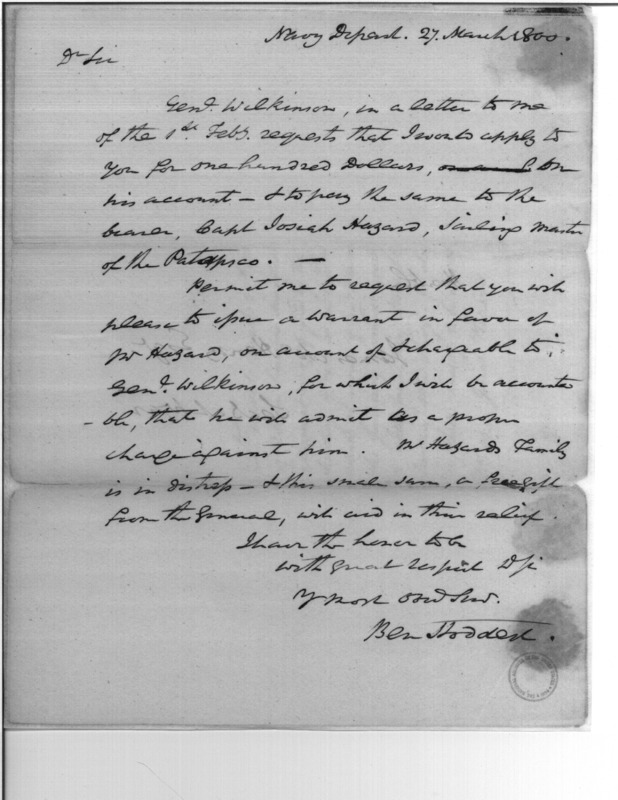 Navy Depart. 27. March 1800.
Dr Sir
Genl. Wilkinson, in a letter to me
of the 1st. Feby. requests that I would apply to
you for one hundred Dollars, on
his account – & to pay the same to the
bearer, Capt Josiah Hazard, Sailing Master
of the Patapsco. —
Permit me to request that you will
please to issue a Warrant in favor of
Mr Hazard, on account of & chargeable to,
Genl. Wilkinson, for which I will be accounta
-ble, that he will admit as a proper
charge against him. Mr Hazards Family
is in distress – & this small sum, a free gift
from the General, will aid in their relief.
I have the honor to be
with great respect D Sir
Y most Obed Serv.
Ben Stoddert.